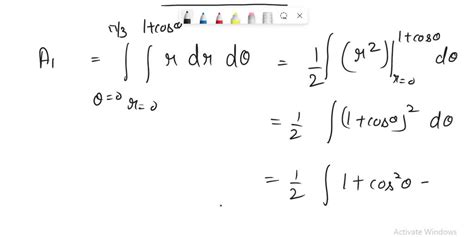 A₁ = ∫_{θ=0}^{π/3} ∫_{r=0}^{1+cosθ} r dr dθ = 1/2 ∫ (r²)|_{r=0}^{1+cosθ} dθ
= 1/2 ∫ (1+cosθ)² dθ
= 1/2 ∫ 1+cos²θ -
Activate Windows